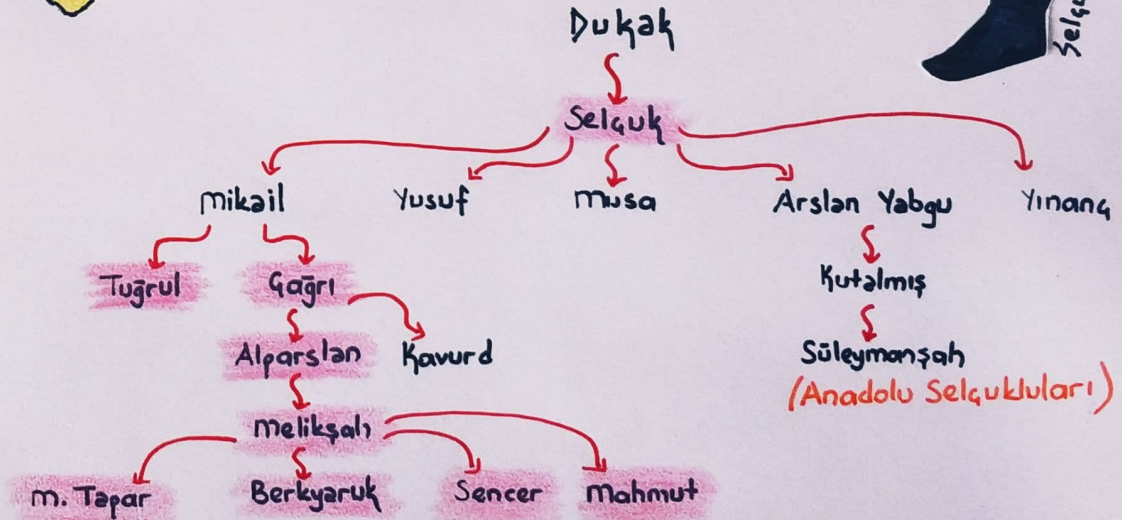 Dukak
Selçuk
Mikail Yusuf Musa Arslan Yabgu Yınanç
Tuğrul Çağrı Kutalmış
Alparslan Kavurd Süleymanşah
(Anadolu Selçukluları)
Melikşah
M. Tapar Berkyaruk Sencer Mahmut